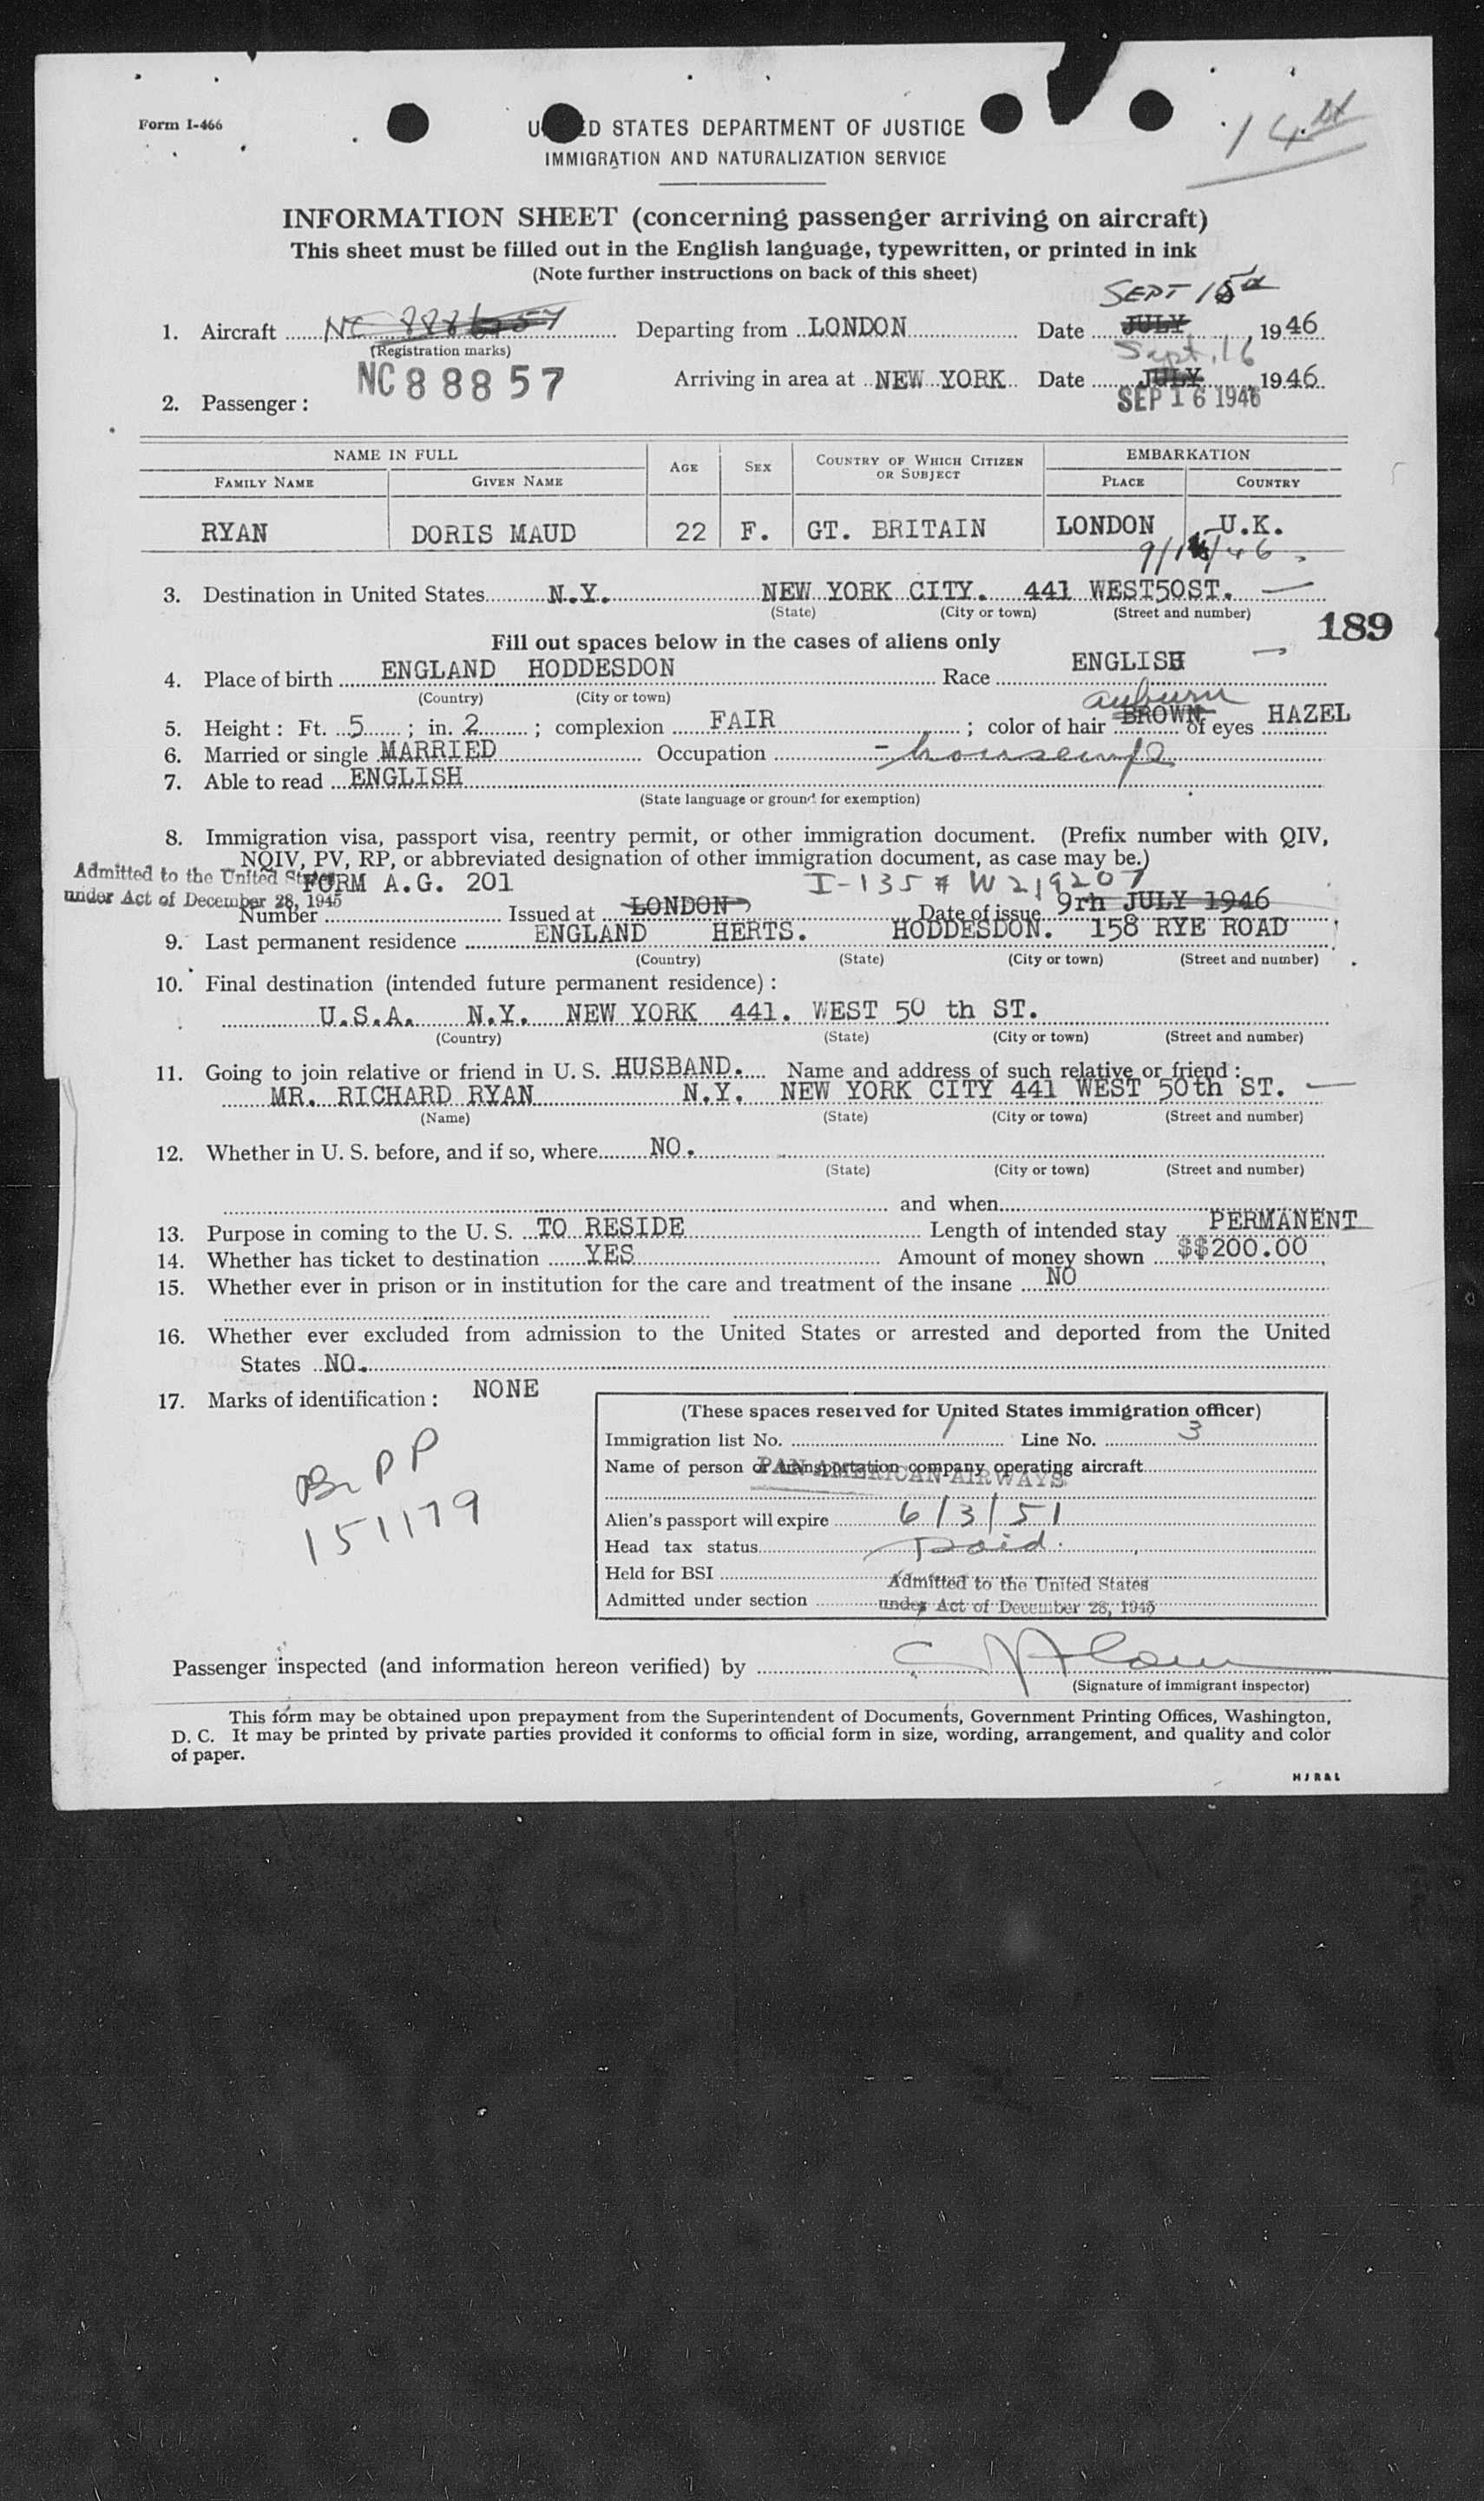 Form I-466
14
UNITED STATES DEPARTMENT OF JUSTICE
IMMIGRATION AND NATURALIZATION SERVICE
INFORMATION SHEET (concerning passenger arriving on aircraft)
This sheet must be filled out in the English language, typewritten, or printed in ink
(Note further instructions on back of this sheet)
SEPT 15
1. Aircraft NC Departing from LONDON Date JULY, 1946
(Registration marks)
Sept. 16
NC 88857 Arriving in area at NEW YORK Date JULY, 1946.
SEP 16 1946
2. Passenger:
NAME IN FULL AGE SEX COUNTRY OF WHICH CITIZEN OR SUBJECT EMBARKATION
FAMILY NAME GIVEN NAME PLACE COUNTRY
RYAN DORIS MAUD 22 F. GT. BRITAIN LONDON U.K.
3. Destination in United States N.Y. NEW YORK CITY. 441 WEST50ST.
(State) (City or town) (Street and number)
189
Fill out spaces below in the cases of aliens only
4. Place of birth ENGLAND HODDESDON Race ENGLISH
(Country) (City or town)
auburn
5. Height: Ft. 5; in. 2; complexion FAIR; color of hair BROWN of eyes HAZEL
6. Married or single MARRIED Occupation - housewife
7. Able to read ENGLISH
(State language or ground for exemption)
8. Immigration visa, passport visa, reentry permit, or other immigration document. (Prefix number with QIV,
NQIV, PV, RP, or abbreviated designation of other immigration document, as case may be.)
Admitted to the United States
under Act of December 28, 1945
FORM A.G. 201 I-135 # W219207
Number Issued at LONDON Date of issue 9rh JULY 1946
9. Last permanent residence ENGLAND HERTS. HODDESDON. 158 RYE ROAD
(Country) (State) (City or town) (Street and number)
10. Final destination (intended future permanent residence):
U.S.A. N.Y. NEW YORK 441. WEST 50 th ST.
(Country) (State) (City or town) (Street and number)
11. Going to join relative or friend in U. S. HUSBAND. Name and address of such relative or friend:
MR. RICHARD RYAN N.Y. NEW YORK CITY 441 WEST 50th ST.
(Name) (State) (City or town) (Street and number)
12. Whether in U. S. before, and if so, where NO.
(State) (City or town) (Street and number)
and when
13. Purpose in coming to the U. S. TO RESIDE Length of intended stay PERMANENT
14. Whether has ticket to destination YES Amount of money shown $$200.00
15. Whether ever in prison or in institution for the care and treatment of the insane NO
16. Whether ever excluded from admission to the United States or arrested and deported from the United
States NO.
17. Marks of identification: NONE
Br PP
151179
(These spaces reserved for United States immigration officer)
Immigration list No. 1 Line No. 3
Name of person or transportation company operating aircraft
PAN AMERICAN AIRWAYS
Alien's passport will expire 6/3/51
Head tax status Paid.
Held for BSI
Admitted under section Admitted to the United States
under Act of December 28, 1945
Passenger inspected (and information hereon verified) by
(Signature of immigrant inspector)
This form may be obtained upon prepayment from the Superintendent of Documents, Government Printing Offices, Washington,
D. C. It may be printed by private parties provided it conforms to official form in size, wording, arrangement, and quality and color
of paper.